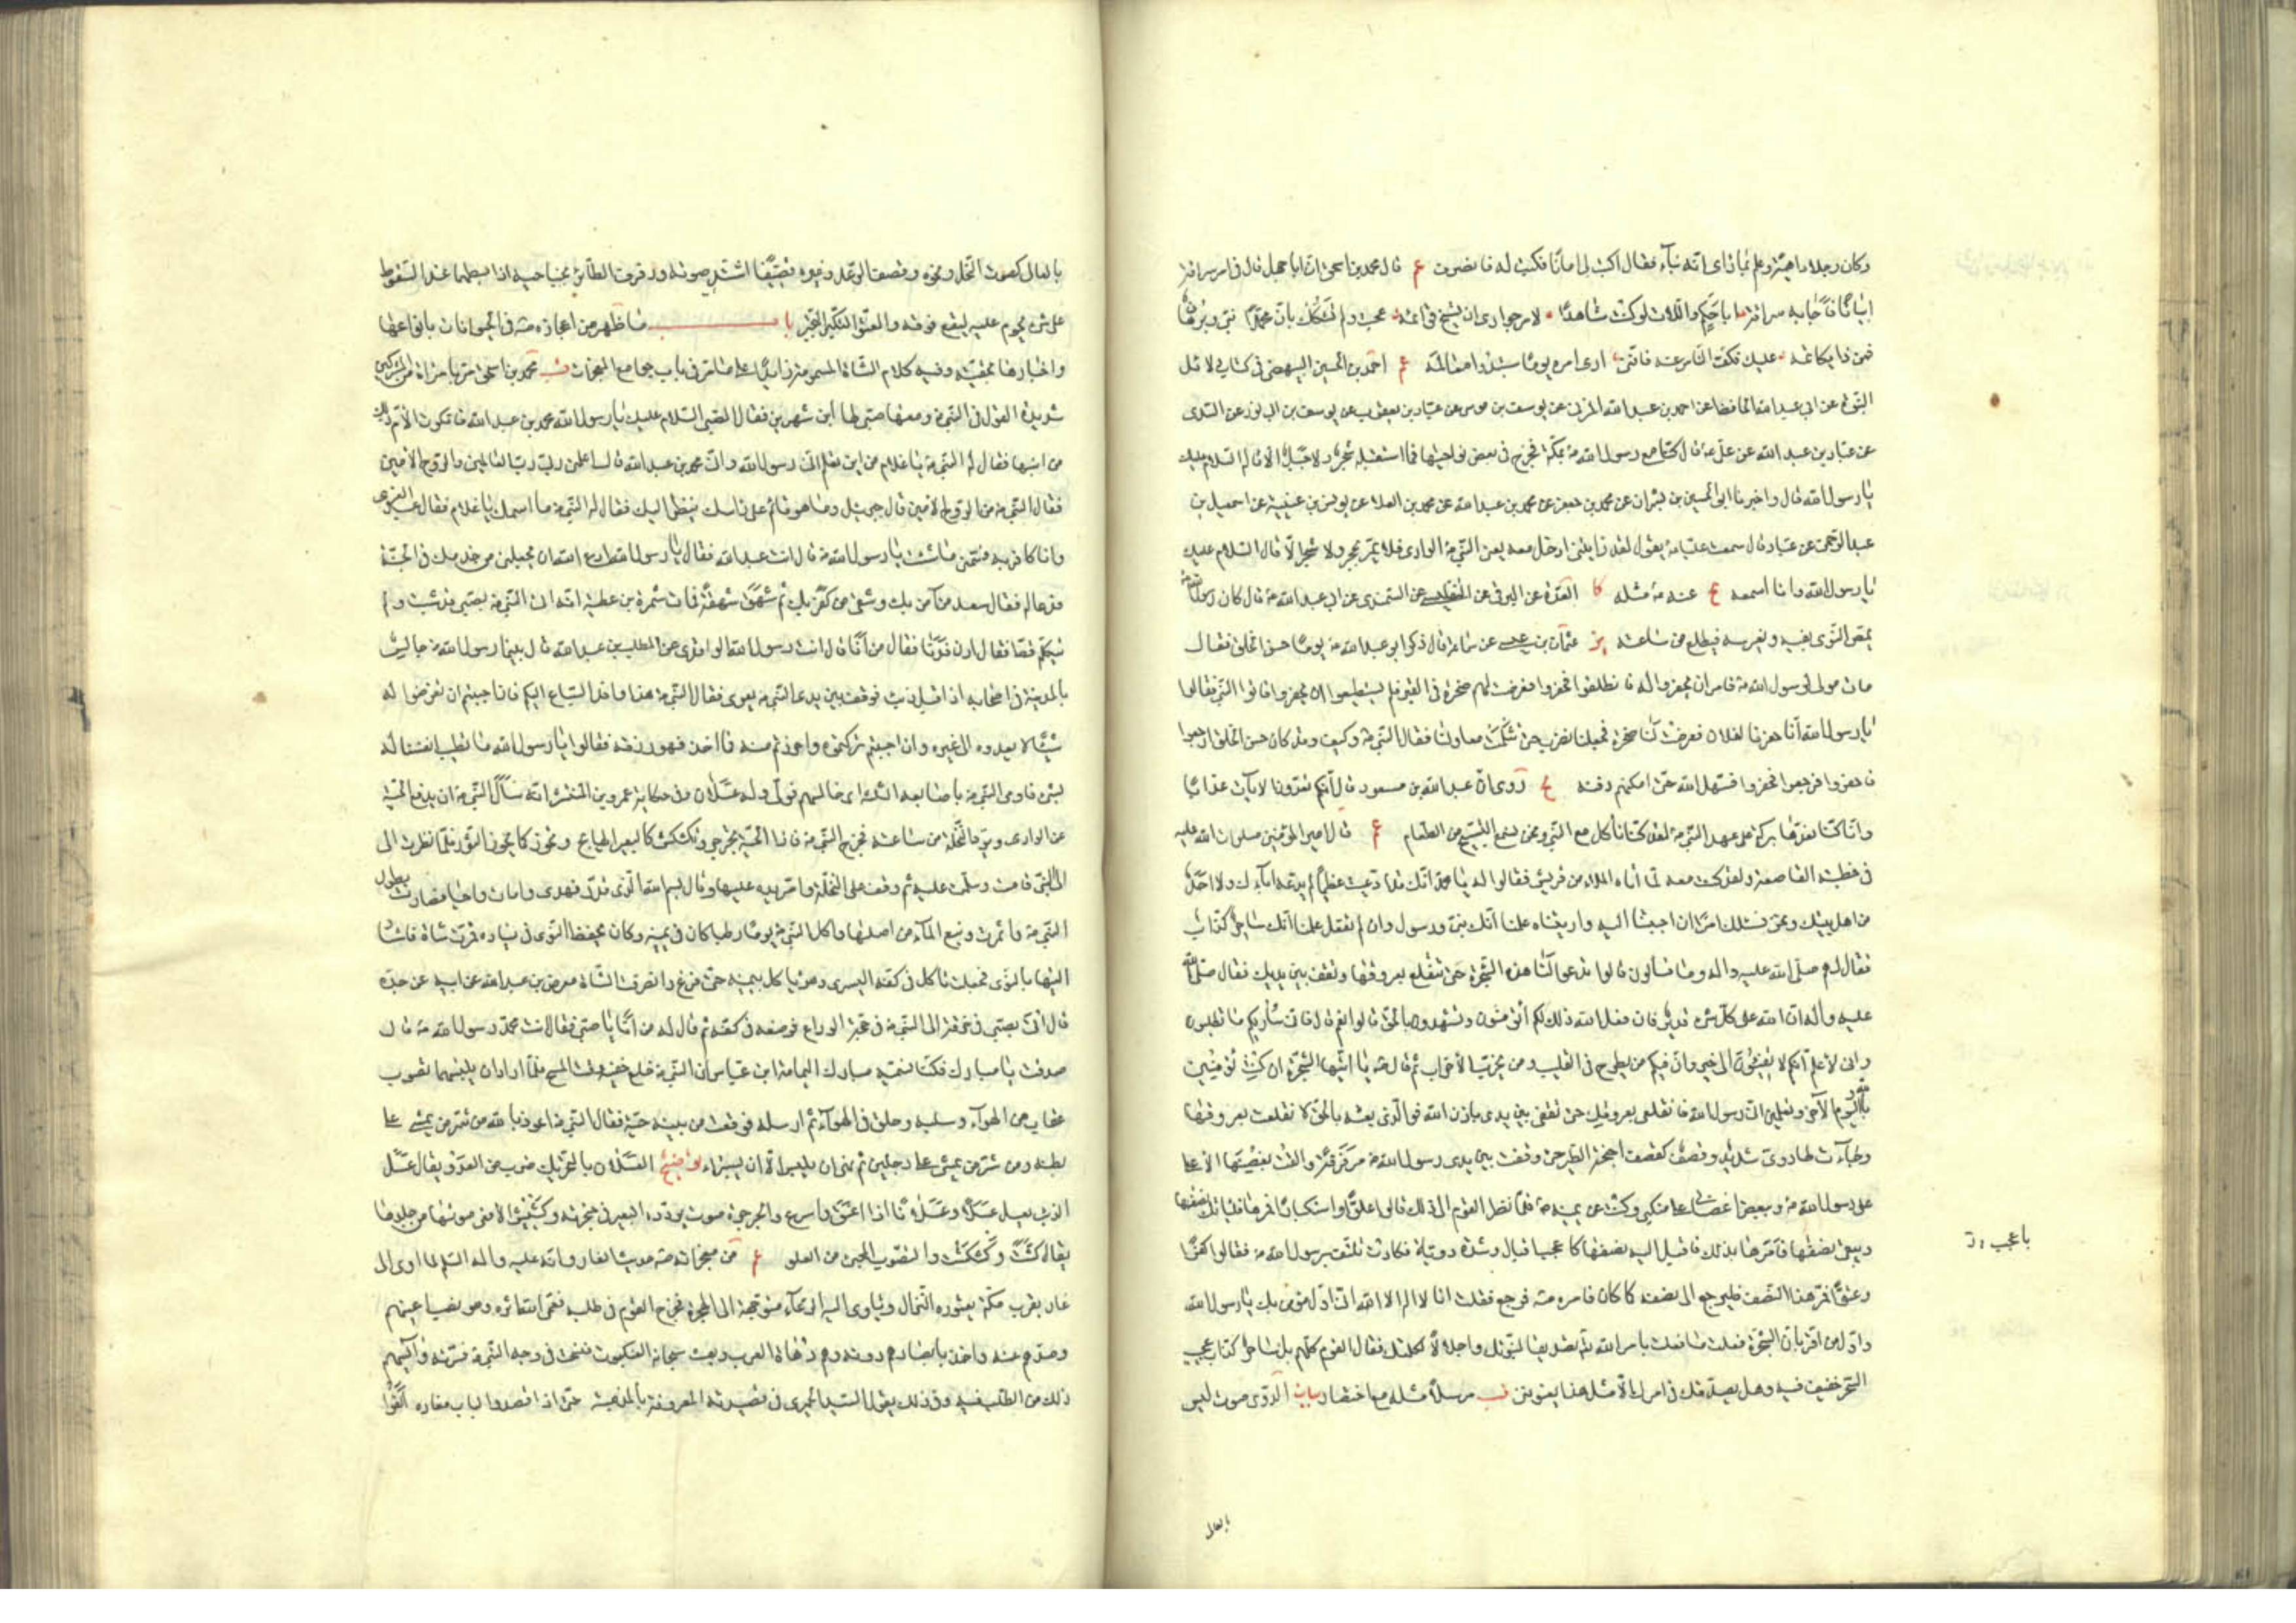 وكان رجلا داهيتا وعلم بما راى انه نبأ فقال اكتب لى امانا فكتب له فانصرف عم قال محمد بن اسحق ان ابا جهل قال فى امر سراقة
ابياتا فاجابه سراقة ابا حكم واللات لو كنت شاهدا لامر جوادى ان يسيخ قوائمه عجبت ولم تشكك بان محمدا نبى وبرهان
فمن ذا يكاتمه عليك فكف الناس عنه فاننى ارى امره يوما ستبدوا معالمه عم احمد بن الحسين البيهقى فى كتاب دلائل
النبوة عن ابى عبد الله الحافظ عن احمد بن عبد الله المزنى عن يوسف بن موسى عن عباد بن يعقوب عن يوسف بن ابى ثور عن السدى
عن عباد بن عبد الله عن على ع قال كنا مع رسول الله ص بمكة فخرج فى بعض نواحيها فما استقبله شجر ولا جبل الا قال له السلام عليك
يا رسول الله قال واخبرنا ابو الحسين بن بشران عن محمد بن جعفر عن محمد بن عبد الله عن محمد بن العلاء عن يونس بن عنبسة عن اسمعيل بن
عبد الرحمن عن عباد قال سمعت عليا ع يقول لقد رايتنى ادخل معه يعنى النبى ص الوادى فلا يمر بحجر ولا شجر الا قال السلام عليك
يا رسول الله وانا اسمعه عم عنه ص مثله كا العدة عن البرقى عن عن السمندى عن ابى عبد الله ع قال كان رسول الله ص
يمص النوى بفيه ويغرسه فيطلع من ساعته ير عثمان بن عيسى عن سماعة قال ذكر ابو عبد الله ع يوما حسن الخلق فقال
مات مولى لرسول الله ص فامر ان يحفروا له فانطلقوا فحفروا فعرضت لهم صخرة فى القبر فلم يستطيعوا ان يحفروا فاتوا النبى فقالوا
يا رسول الله انا حفرنا لفلان فعرضت لنا صخرة فجعلنا نضرب حتى تثلمت معاولنا فقال النبى ص وكيف وقد كان حسن الخلق ارجعوا
فاحفروا فرجعوا فحفروا فسهل الله حتى امكنهم دفنه يج روى ان عبد الله بن مسعود قال انكم تعدون الايات عذابا
وانا كنا نعدها بركة على عهد النبى ص لقد كنا ناكل مع النبى ونحن نسمع التسبيح من الطعام عم قال امير المؤمنين صلوات الله عليه
فى خطبته القاصعة ولقد كنت معه لما اتاه الملاء من قريش فقالوا له يا محمد انك قد ادعيت عظيما لم يدعه اباؤك ولا احد
من اهل بيتك ونحن نسئلك امرا ان اجبتنا اليه واريتناه علمنا انك نبى ورسول وان لم تفعل علمنا انك ساحر كذاب
فقال لهم صلى الله عليه واله وما تسالون قالوا تدعوا لنا هذه الشجرة حتى تنقلع بعروقها وتقف بين يديك فقال صلى الله
عليه واله ان الله على كل شىء قدير فان فعل الله ذلك لكم أتؤمنون وتشهدون بالحق قالوا نعم قال فانى ساريكم ما تطلبون
وانى لاعلم انكم لا تفيئون الى خير وان فيكم من يطرح فى القليب ومن يحزب الاحزاب ثم قال ص يا ايتها الشجرة ان كنت تؤمنين
بالله واليوم الآخر وتعلمين انى رسول الله فانقلعى بعروقك حتى تقفى بين يدى باذن الله فو الذى بعثه بالحق لانقلعت بعروقها
وجاءت ولها دوى شديد وقصف كقصف اجنحة الطير حتى وقفت بين يدى رسول الله ص مرفرفة والقت بغصنها الاعلى
على رسول الله ص وببعض اغصانها على منكبى وكنت عن يمينه ص فلما نظر القوم الى ذلك قالوا علوا واستكبارا فمرها فلياتك نصفها
ويبقى نصفها فامرها بذلك فاقبل اليه نصفها كاعجب اقبال وشدة دويا فكادت تلتف برسول الله ص فقالوا كفرا
وعتوا فمر هذا النصف فليرجع الى نصفه كما كان فامره ص فرجع فقلت انا لا اله الا الله انى اول مؤمن بك يا رسول الله
واول من اقر بان الشجرة فعلت ما فعلت بامر الله تع تصديقا لنبوتك واجلالا لكلمتك فقال القوم كلهم بل ساحر كذاب عجيب
السحر خفيف فيه وهل يصدقك فى امرك الا مثل هذا يعنوننى قب مرسلا مثله مع اختصار بيان الدوى صوت ليس
باعجب
بالعال
بالعال كصوت النحل ونحوه وقصف الرعد وغيره قصيفا اشتد صوته ورفرفت الطائر بجناحيه اذا بسطهما عند السقوط
على شىء يحوم عليه ليقع فوقه والعتو التكبر التجبر باب ما ظهر من اعجازه ص فى الحيوانات بانواعها
واخبارها بحقيته وفيه كلام الشاة المسمومة زائدا على ما مر فى باب جوامع المعجزات قب محمد بن اسحق مر بامراة من المشركين
شديدة القول فى النبى ص ومعها صبى لها ابن شهرين فقال الصبى السلام عليك يا رسول الله محمد بن عبد الله فانكرت الام ذلك
من ابنها فقال له النبى ص يا غلام من اين تعلم انى رسول الله وانى محمد بن عبد الله قال اعلمنى ربى رب العالمين والروح الامين
فقال النبى ص من الروح الامين قال جبرئيل وها هو قائم على راسك ينظر اليك فقال له النبى ص ما اسمك يا غلام فقال عبد العزى
وانا كافر به فسمنى ما شئت يا رسول الله ص قال انت عبد الله فقال يا رسول الله ادع الله ان يجعلنى من خدمك فى الجنة
فدعا له فقال سعد من آمن بك وشقى من كفر بك ثم شهق شهقة فمات شمرة بن عطية انه اتى النبى ص بصبى قد شب ولم
يتكلم قط فقال ادن فدنا فقال من انا قال انت رسول الله الواقدى عن المطلب بن عبد الله قال بينما رسول الله ص جالس
بالمدينة فى اصحابه اذ اقبل ذئب فوقف بين يدى النبى ص يعوى فقال النبى ص هذا وافد السباع اليكم فان احببتم ان تفرضوا له
شيئا لا يعدوه الى غيره وان احببتم تركتموه واحرزتم منه فما اخذ فهو رزقه فقالوا يا رسول الله ما تطيب انفسنا له
بشىء فاومى النبى ص باصابعه الثلاثة اى خالسهم فولى وله عسلان وفى حكاية عمرو بن المنتشر انه سأل النبى ص ان يدفع الحية
عن الوادى ويرد النخلة من ساعته فخرج النبى ص فاذا الحية تجرجر وتكشكش كالبعير الهائج وتخور كما يخور الثور فلما نظرت الى
النبى قامت وسلمت عليه ثم وقف على النخلة وامر يده عليها وقال بسم الله الذى قدر فهدى وامات واحيا فصارت بطول
النبى ص واثمرت ونبع الماء من اصلها واكل النبى ص يوما رطبا كان فى يمينه وكان يحفظ النوى فى يساره فمرت شاة فاشار
اليها بالنوى فجعلت تاكل فى كفه اليسرى وهو ياكل بيمينه حتى فرغ وانصرفت الشاة معرض بن عبد الله عن ابيه عن جده
قال اتى بصبى فى خرقة الى النبى ص فى حجة الوداع فوضعه فى كفه ثم قال له من انا يا صبى فقال انت محمد رسول الله ص قال
صدقت يا مبارك فكنا نسميه مبارك اليمامة ابن عباس ان النبى ص خلع خفيه وقت المسح فلما اراد ان يلبسهما تصوب
عقاب من الهواء وسلبه وحلق فى الهواء ثم ارسله فوقعت من بينه حية فقال النبى ص اعوذ بالله من شر من يمشى على
بطنه ومن شر من يمشى على رجلين ثم نهى ان يلبس الا ان يستبراء توضيح العسلان بالتحريك ضرب من العدو يقال عسل
الذئب يعسل عسلا وعسلانا اذا اعنق واسرع والجرجرة صوت يردده البعير فى حنجرته وكشيش الافعى صوتها من جلدها
يقال كشت وكشكشت والتصويب المجىء من العلو عم من معجزاته ص حديث الغار وانه عليه واله السلم لما اوى الى
غار بقرب مكة يعتوره النزال وياوى اليه الرعاء متوجهة الى الهجرة فخرج القوم فى طلبه فعمى الله اثره وهو نصب اعينهم
وصدهم عنه واخذ بابصارهم دونه وهم دهاة العرب وبعث سبحانه العنكبوت فنسجت فى وجه النبى ص فسترته وآيسهم
ذلك من الطلب فيه وفى ذلك يقول السيد الحميرى فى قصيدته المعروفة بالمذهبة حتى اذا قصدوا لباب مغاره الفوا